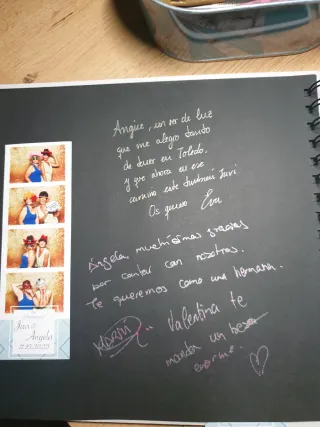 Angie, un ser de luz
que me alegro tanto
de tener en Toledo.
y que ahora en ese
camino este también Javi
Os quiero Eva
Ángela, muchísimas gracias
por contar con nosotras.
Te queremos como una hermana.
Valentina te
manda un beso
enorme.
Javi &
Angela